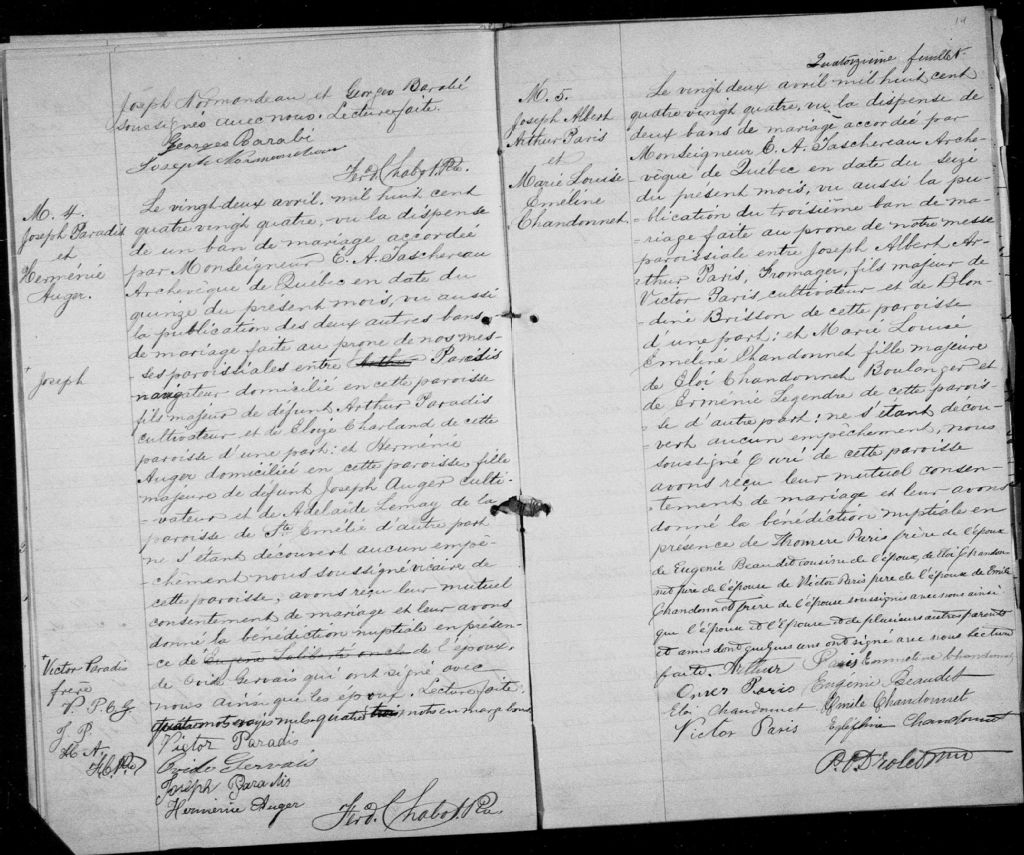 Joseph Normandeau et Georges Barabé
soussignés avec nous. Lecture faite
Georges Barabé
Joseph Normandeau
Ferd. Chabot. Ptre.
M. 4.
Joseph Paradis
et
Herménie
Auger.
Le vingt deux avril, mil huit cent
quatre vingt quatre, vu la dispense
de un ban de mariage accordée
par Monseigneur E. A. Taschereau
Archevêque de Québec en date du
quinze du présent mois, vu aussi
la publication des deux autres bans
de mariage faite au prone de nos mes-
-ses paroissiales entre Arthur Paradis
Joseph
navigateur domicilié en cette paroisse
fils majeur de défunt Arthur Paradis
cultivateur et de Eloize Charland de cette
paroisse d'une part: et Herménie
Auger domiciliée en cette paroisse, fille
majeure de défunt Joseph Auger culti-
-vateur et de Adelaide Lemay de la
paroisse de Ste Emélie d'autre part
ne s'étant découvert aucun empê-
-chement nous soussigné vicaire de
cette paroisse, avons reçu leur mutuel
consentement de mariage et leur avons
donné la bénédiction nuptiale en présen-
-ce de Eugène Laliberté oncle de l'époux,
Victor Paradis
frère
V. P. O G
J. P.
H. A.
F. C. Ptre
de Ovide Gervais qui ont signé avec
nous ainsi que les époux. Lecture faite.
quatre mots rayés nuls quatre mots en marge bons
Victor Paradis
Ovide Gervais
Joseph Paradis
Herménie Auger
Ferd. Chabot. Ptre
14
Quatorzième feuillet
M. 5.
Joseph Albert
Arthur Paris
et
Marie Louise
Emeline
Chandonnet.
Le vingt deux avril mil huit cent
quatre vingt quatre, vu la dispense de
deux bans de mariage accordée par
Monseigneur E. A. Taschereau Arche-
-vêque de Québec en date du seize
du présent mois, vu aussi la pu-
-blication du troisième ban de ma-
-riage faite au prone de notre messe
paroissiale entre Joseph Albert Ar-
-thur Paris, fromager, fils majeur de
Victor Paris cultivateur et de Blon-
-dine Brisson de cette paroisse
d'une part; et Marie Louise
Emeline Chandonnet fille majeure
de Eloi Chandonnet Boulanger et
de Erménie Legendre de cette parois-
-se d'autre part: ne s'étant décou-
vert aucun empêchement, nous
soussigné Curé de cette paroisse
avons reçu leur mutuel consen-
-tement de mariage et leur avons
donné la bénédiction nuptiale en
présence de Homère Paris frère de l'époux
de Eugénie Beaudet cousine de l'époux, de Eloi Chandon-
net père de l'épouse de Victor Paris père de l'époux de Emile
Chandonnet frère de l'épouse soussignés avec nous ainsi
que l'époux et l'Epouse et de plusieurs autres parents
et amis dont quelques uns ont signé avec nous Lecture
faite. Arthur Paris Emmeline Chandonnet
Omer Paris Eugénie Beaudet
Eloi Chandonnet Emile Chandonnet
Victor Paris Chandonnet
P. O. Drolet Ptre